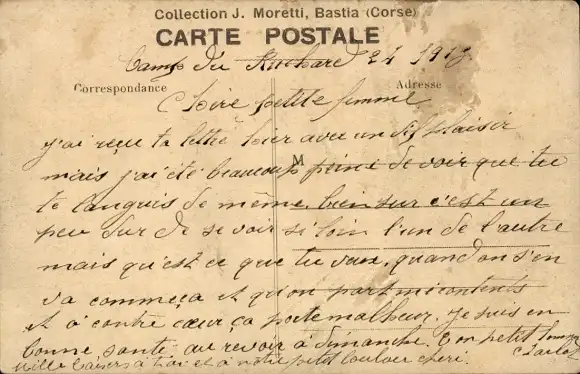 Collection J. Moretti, Bastia (Corse)
CARTE POSTALE
Camp du Ruchard 24 1917
Correspondance
Adresse
Chère petite femme
j'ai reçu ta lettre hier avec un vif plaisir
M
mais j'ai été beaucoup peiné de voir que tu
te languis de même, bien sur c'est un
peu dur de se voir si loin l'un de l'autre
mais qu'est ce que tu veux, quand on s'en
va comme ça et qu'on part micontents
et à contre cœur ça porte malheur. Je suis en
bonne santé au revoir à dimanche. Ton petit
Mille baisers à toi et à notre petit loulou chéri.